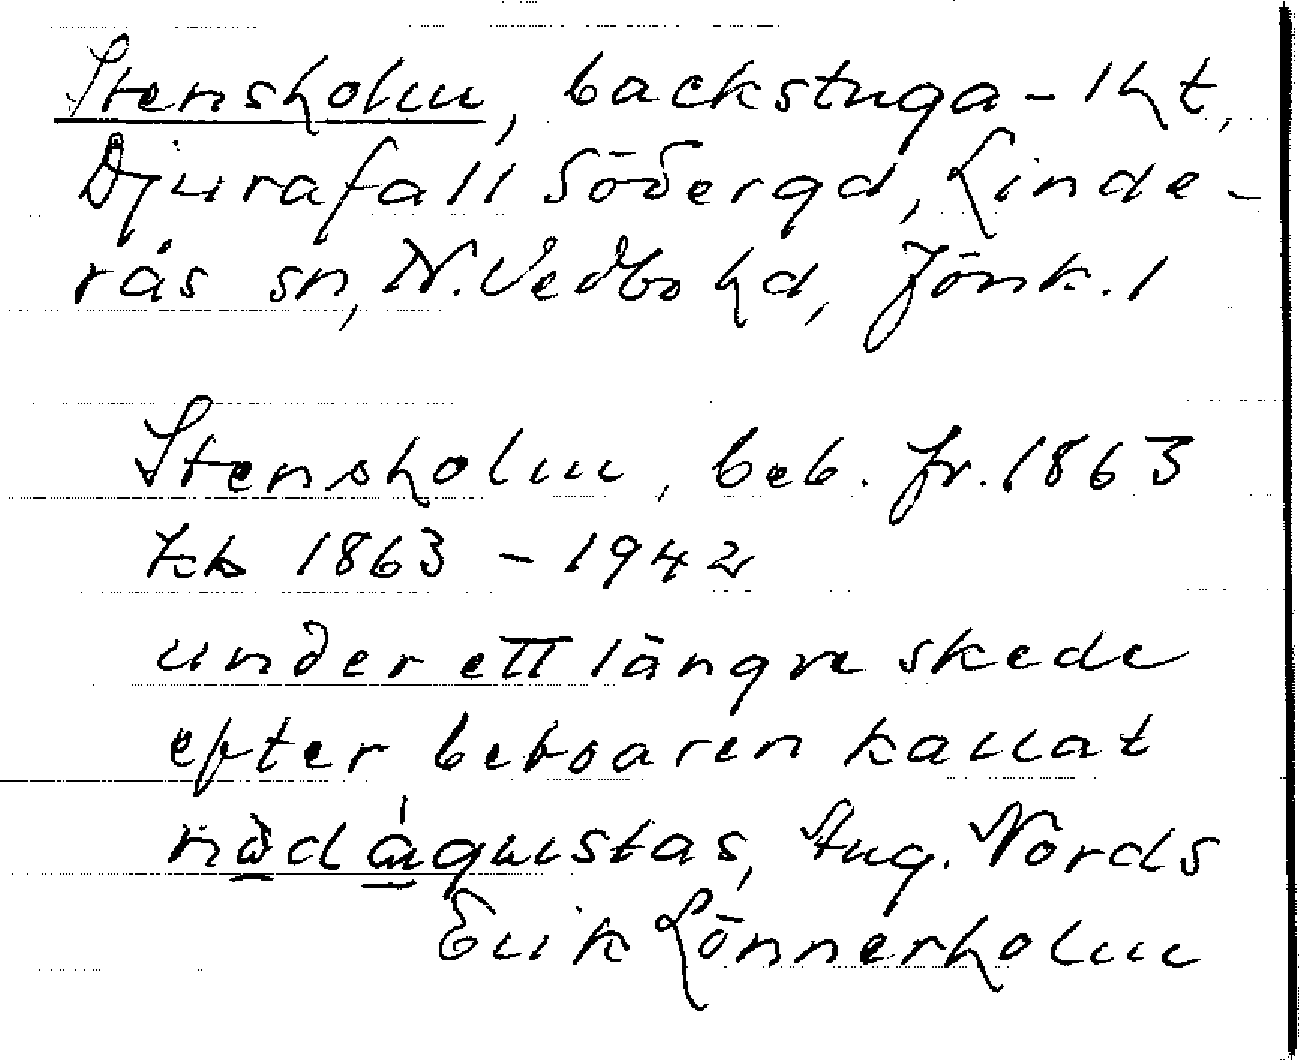 Stensholm, backstuga-lht,
Djurafall Södergd, Linde-
rås sn, N. Vedbo hd, Jönk. l
Stensholm, beb. fr. 1863
kb 1863 - 1942
under ett längre skede
efter beboaren kallat
Aug. Nords
Erik Lönnerholm